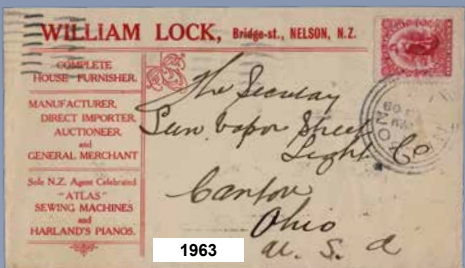 WILLIAM LOCK, Bridge-st., NELSON, N.Z.
COMPLETE
HOUSE FURNISHER.
MANUFACTURER,
DIRECT IMPORTER,
AUCTIONEER
and
GENERAL MERCHANT
Sole N.Z. Agent Celebrated
"ATLAS"
SEWING MACHINES
and
HARLAND'S PIANOS.
The Secretary
Sun Vapor Street
Light Co
Canton
Ohio
U. S. A
1963